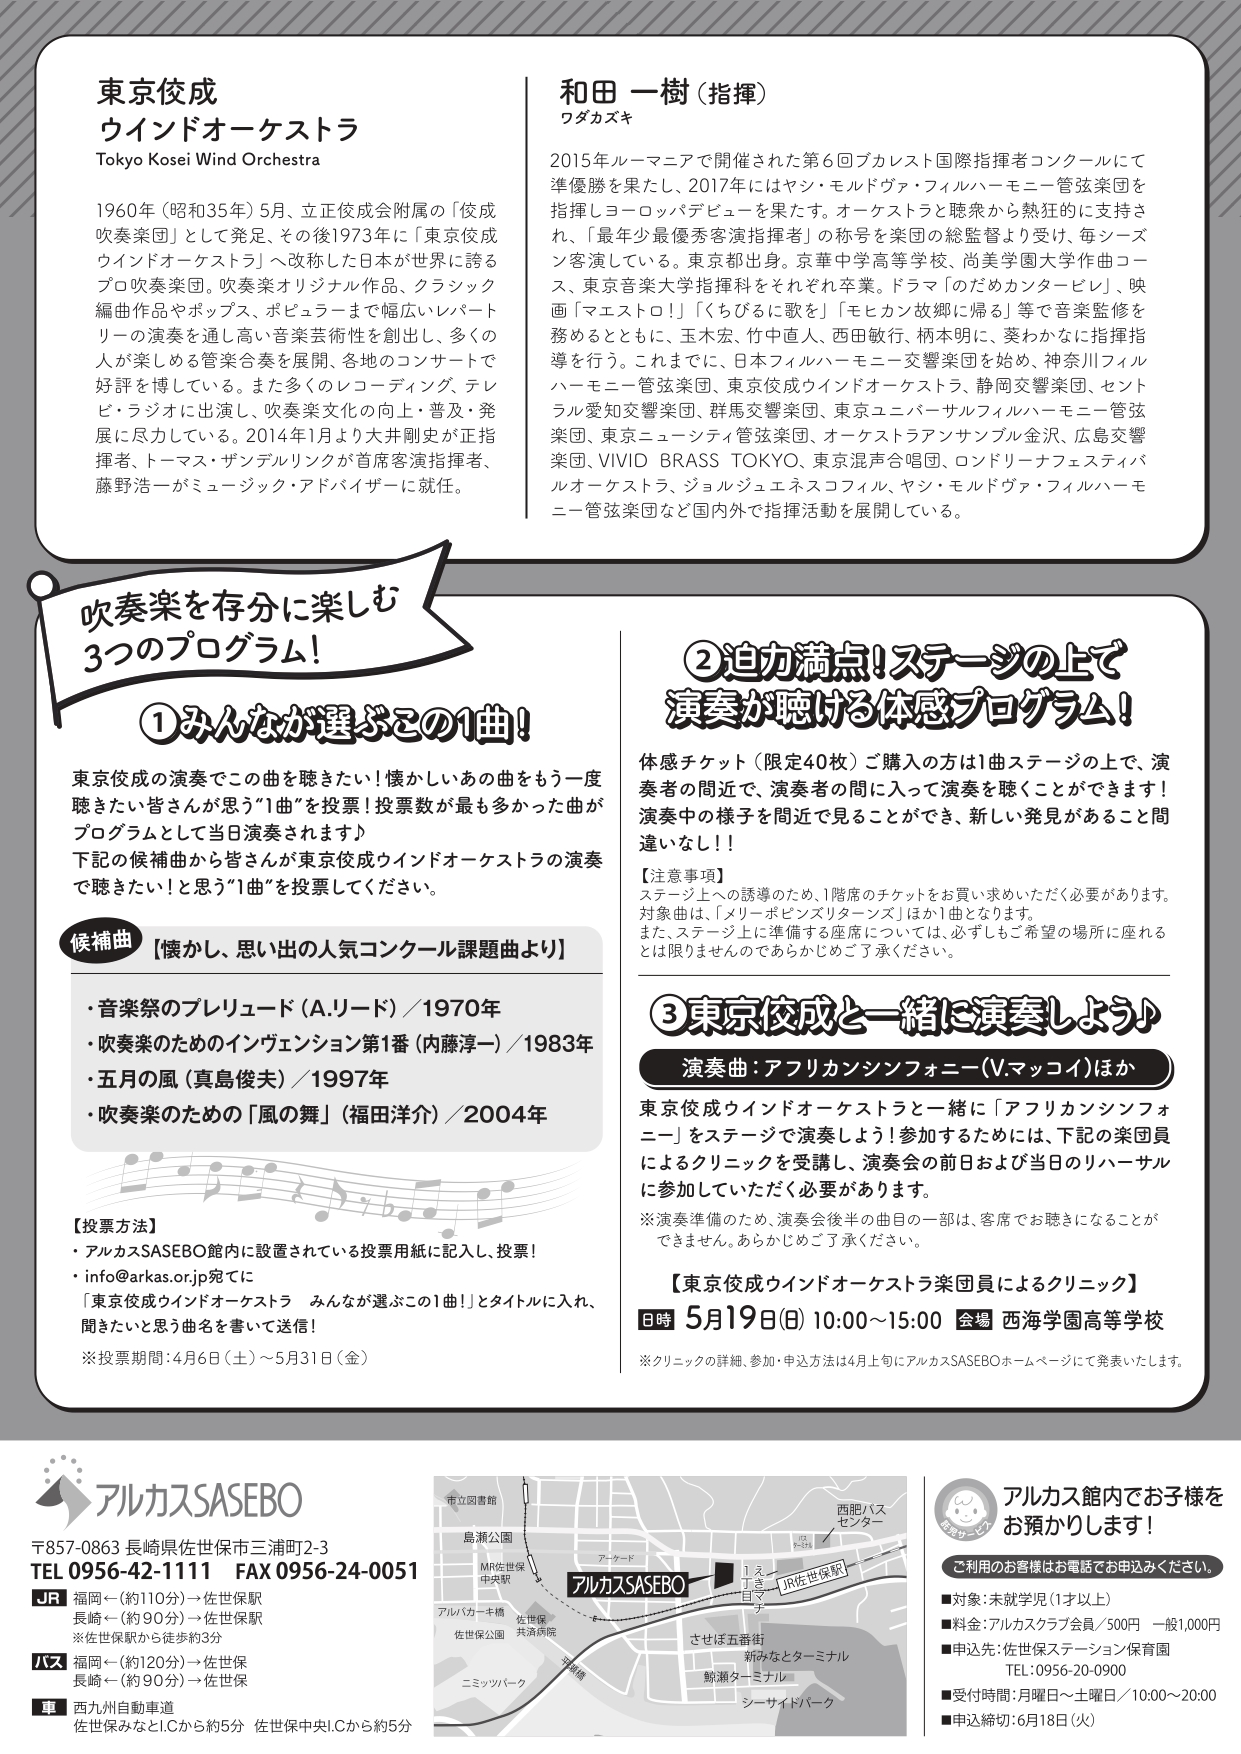 東京佼成
ウインドオーケストラ
Tokyo Kosei Wind Orchestra
1960年(昭和35年)5月、立正佼成会附属の「佼成
吹奏楽団」として発足、その後1973年に「東京佼成
ウインドオーケストラ」へ改称した日本が世界に誇る
プロ吹奏楽団。吹奏楽オリジナル作品、クラシック
編曲作品やポップス、ポピュラーまで幅広いレパート
リーの演奏を通し高い音楽芸術性を創出し、多くの
人が楽しめる管楽合奏を展開、各地のコンサートで
好評を博している。また多くのレコーディング、テレ
ビ・ラジオに出演し、吹奏楽文化の向上・普及・発
展に尽力している。2014年1月より大井剛史が正指
揮者、トーマス・ザンデルリンクが首席客演指揮者、
藤野浩一がミュージック・アドバイザーに就任。
和田 一樹(指揮)
ワダカズキ
2015年ルーマニアで開催された第6回ブカレスト国際指揮者コンクールにて
準優勝を果たし、2017年にはヤシ・モルドヴァ・フィルハーモニー管弦楽団を
指揮しヨーロッパデビューを果たす。オーケストラと聴衆から熱狂的に支持さ
れ、「最年少最優秀客演指揮者」の称号を楽団の総監督より受け、毎シーズ
ン客演している。東京都出身。京華中学高等学校、尚美学園大学作曲コー
ス、東京音楽大学指揮科をそれぞれ卒業。ドラマ「のだめカンタービレ」、映
画「マエストロ!」「くちびるに歌を」「モヒカン故郷に帰る」等で音楽監修を
務めるとともに、玉木宏、竹中直人、西田敏行、柄本明に、葵わかなに指揮指
導を行う。これまでに、日本フィルハーモニー交響楽団を始め、神奈川フィル
ハーモニー管弦楽団、東京佼成ウインドオーケストラ、静岡交響楽団、セント
ラル愛知交響楽団、群馬交響楽団、東京ユニバーサルフィルハーモニー管弦
楽団、東京ニューシティ管弦楽団、オーケストラアンサンブル金沢、広島交響
楽団、VIVID BRASS TOKYO、東京混声合唱団、ロンドリーナフェスティバ
ルオーケストラ、ジョルジュエネスコフィル、ヤシ・モルドヴァ・フィルハーモ
ニー管弦楽団など国内外で指揮活動を展開している。
吹奏楽を存分に楽しむ
3つのプログラム!
①みんなが選ぶこの1曲!
東京佼成の演奏でこの曲を聴きたい!懐かしいあの曲をもう一度
聴きたい皆さんが思う"1曲"を投票!投票数が最も多かった曲が
プログラムとして当日演奏されます♪
下記の候補曲から皆さんが東京佼成ウインドオーケストラの演奏
で聴きたい!と思う"1曲"を投票してください。
候補曲 【懐かし、思い出の人気コンクール課題曲より】
・音楽祭のプレリュード(A.リード)／1970年
・吹奏楽のためのインヴェンション第1番(内藤淳一)／1983年
・五月の風(真島俊夫)／1997年
・吹奏楽のための「風の舞」(福田洋介)／2004年
【投票方法】
・アルカスSASEBO館内に設置されている投票用紙に記入し、投票!
・info@arkas.or.jp宛てに
「東京佼成ウインドオーケストラ みんなが選ぶこの1曲!」とタイトルに入れ、
聞きたいと思う曲名を書いて送信!
※投票期間:4月6日(土)〜5月31日(金)
②迫力満点!ステージの上で
演奏が聴ける体感プログラム!
体感チケット(限定40枚)ご購入の方は1曲ステージの上で、演
奏者の間近で、演奏者の間に入って演奏を聴くことができます!
演奏中の様子を間近で見ることができ、新しい発見があること間
違いなし!!
【注意事項】
ステージ上への誘導のため、1階席のチケットをお買い求めいただく必要があります。
対象曲は、「メリーポピンズリターンズ」ほか1曲となります。
また、ステージ上に準備する座席については、必ずしもご希望の場所に座れる
とは限りませんのであらかじめご了承ください。
③東京佼成と一緒に演奏しよう♪
演奏曲:アフリカンシンフォニー(V.マッコイ)ほか
東京佼成ウインドオーケストラと一緒に「アフリカンシンフォ
ニー」をステージで演奏しよう!参加するためには、下記の楽団員
によるクリニックを受講し、演奏会の前日および当日のリハーサル
に参加していただく必要があります。
※演奏準備のため、演奏会後半の曲目の一部は、客席でお聴きになることが
できません。あらかじめご了承ください。
【東京佼成ウインドオーケストラ楽団員によるクリニック】
日時 5月19日(日) 10:00〜15:00 会場 西海学園高等学校
※クリニックの詳細、参加・申込方法は4月上旬にアルカスSASEBOホームページにて発表いたします。
アルカスSASEBO
〒857-0863 長崎県佐世保市三浦町2-3
TEL 0956-42-1111 FAX 0956-24-0051
JR 福岡←(約110分)→佐世保駅
長崎←(約90分)→佐世保駅
※佐世保駅から徒歩約3分
バス 福岡←(約120分)→佐世保
長崎←(約90分)→佐世保
車 西九州自動車道
佐世保みなとI.Cから約5分 佐世保中央I.Cから約5分
市立図書館
島瀬公園
MR佐世保
中央駅
アーケード
西肥バス
センター
バス
ターミナル
アルカスSASEBO
えきマチ
1丁目
JR佐世保駅
アルバカーキ橋
佐世保公園
佐世保
共済病院
平瀬橋
ニミッツパーク
させぼ五番街
新みなとターミナル
鯨瀬ターミナル
シーサイドパーク
託児サービス
アルカス館内でお子様を
お預かりします!
ご利用のお客様はお電話でお申込みください。
■対象:未就学児(1才以上)
■料金:アルカスクラブ会員／500円 一般1,000円
■申込先:佐世保ステーション保育園
TEL:0956-20-0900
■受付時間:月曜日〜土曜日／10:00〜20:00
■申込締切:6月18日(火)